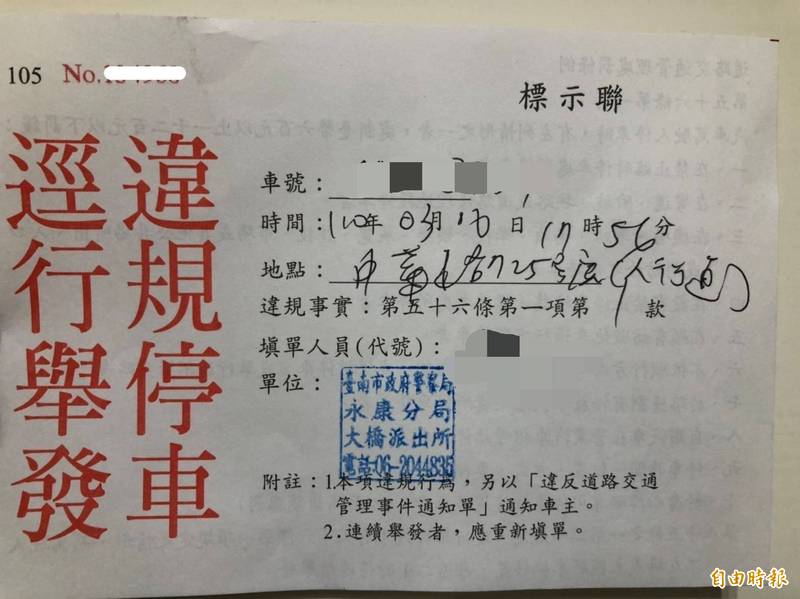 105 No.
標示聯
違規停車
逕行舉發
車號:
時間:110年 03月 10日 17時 56分
地點: 中華 路 725號 (人行道)
違規事實:第五十六條第一項第 1 款
填單人員(代號):
單位:
臺南市政府警察局
永康分局
大橋派出所
電話:06-2044836
附註:1.本項違規行為,另以「違反道路交通
管理事件通知單」通知車主。
2.連續舉發者,應重新填單。
自由時報